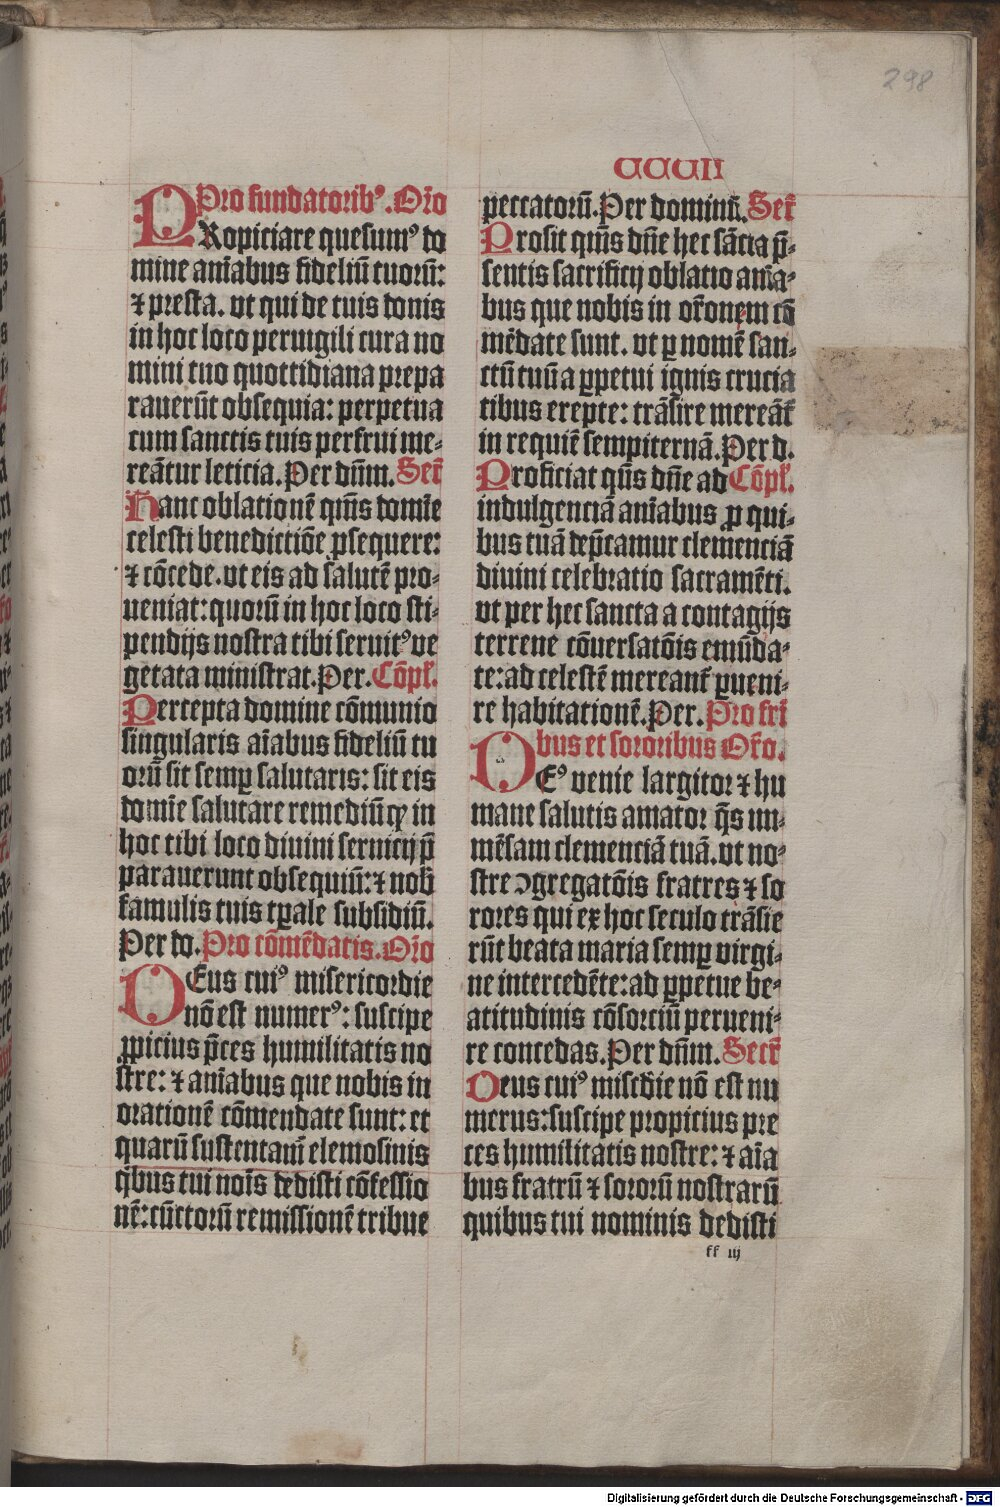 298
CCCVII
Pro fundatoribꝰ. Or̃o
PRopiciare quesumꝰ do
mine aīabus fideliū tuorū:
⁊ presta. vt qui de tuis donis
in hoc loco peruigili cura no
mini tuo quottidiana prepa
rauerūt obsequia: perpetua
cum sanctis tuis perfrui me-
reātur leticia. Per dn̄m. Secr̄
Hanc oblationē qm̄s domīe
celesti benedictiōe ꝓsequere:
⁊ cōcede. vt eis ad salutē pro-
ueniat: quorū in hoc loco sti-
pendijs nostra tibi seruitꝰ ve
getata ministrat. Per. Cōpl̄.
Percepta domine cōmunio
singularis aīabus fideliū tu
orū sit semꝑ salutaris: sit eis
domīe salutare remediū ꝙ in
hoc tibi loco diuini seruicij p̄
parauerunt obsequiū: ⁊ nob̄
famulis tuis tꝑale subsidiū.
Per do. Pro cōmēdatis. Or̃o
DEus cuiꝰ misericordie
nō est numerꝰ: suscipe
ꝓpicius p̄ces humilitatis no
stre: ⁊ aīabus que nobis in
orationē cōmendate sunt: et
quarū sustentam̄ elemosinis
q̄bus tui noīs dedisti cōfessio
nē: cūctorū remissionē tribue
peccatorū. Per dominū. Secr̄
Prosit qm̄s dn̄e hec sācta p̄-
sentis sacrificij oblatio aīa-
bus que nobis in or̄onem cō
mēdate sunt. vt ꝑ nomē san-
ctū tuū a ꝑpetui ignis crucia
tibus erepte: trāsire mereāt̄
in requiē sempiternā. Per d.
Proficiat qm̄s dn̄e ad Cōpl̄.
indulgenciā aīabus ꝓ qui-
bus tuā dep̄camur clemenciā
diuini celebratio sacramēti.
vt per hec sancta a contagijs
terrene cōuersatōis emūda-
te: ad celestē mereant̄ ꝑueni-
re habitationē. Per. Pro fr̄i
bus et sororibus Or̄o.
DEꝰ venie largitor ⁊ hu
mane salutis amator q̄s im-
mēsam clemenciā tuā. vt no-
stre ↄgregatōis fratres ⁊ so
rores qui ex hoc seculo trāsie
rūt beata maria semꝑ virgi-
ne intercedēte: ad ꝑpetue be-
atitudinis cōsorciū perueni-
re concedas. Per dn̄m. Secr̄
Deus cuiꝰ miscdie nō est nu
merus: suscipe propicius pre
ces humilitatis nostre: ⁊ aīa
bus fratrū ⁊ sororū nostrarū
quibus tui nominis dedisti
ff iij
Digitalisierung gefördert durch die Deutsche Forschungsgemeinschaft - DFG